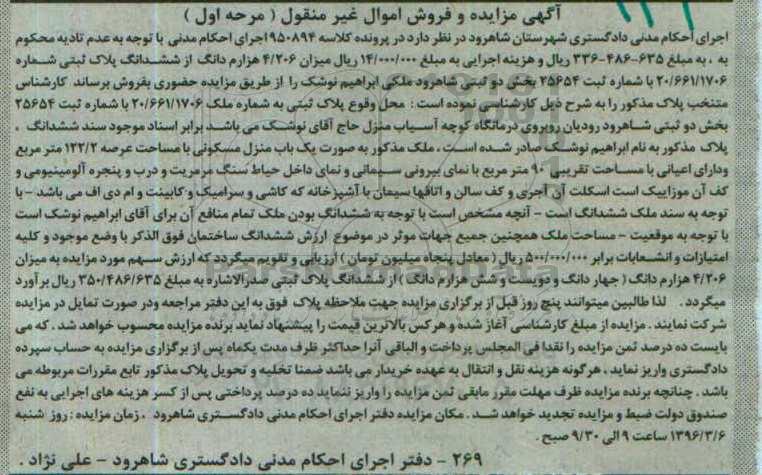 آگهی مزایده و فروش اموال غیر منقول ( مرحه اول )
اجرای احکام مدنی دادگستری شهرستان شاهرود در نظر دارد در پرونده کلاسه ۹۵۰۸۹۴ اجرای احکام مدنی با توجه به عدم تادیه محکوم
به ، به مبلغ ۶۳۵-۴۸۶-۳۳۶ ریال و هزینه اجرایی به مبلغ ۱۴/۰۰۰/۰۰۰ ریال میزان ۴/۲۰۶ هزارم دانگ از ششدانگ پلاک ثبتی شماره
۲۰/۶۶۱/۱۷۰۶ با شماره ثبت ۲۵۶۵۴ بخش دو ثبتی شاهرود ملکی ابراهیم نوشک را از طریق مزایده حضوری بفروش برساند کارشناس
منتخب پلاک مذکور را به شرح ذیل کارشناسی نموده است : محل وقوع پلاک ثبتی به شماره ملک ۲۰/۶۶۱/۱۷۰۶ با شماره ثبت ۲۵۶۵۴
بخش دو ثبتی شاهرود رودیان روبروی درمانگاه کوچه آسیاب منزل حاج آقای نوشک می باشد برابر اسناد موجود سند ششدانگ .
پلاک مذکور به نام ابراهیم نوشک صادر شده است ، ملک مذکور به صورت یک باب منزل مسکونی با مساحت عرصه ۱۲۲/۲ متر مربع
ودارای اعیانی با مساحت تقریبی ۹۰ متر مربع با نمای بیرونی سیمانی و نمای داخل حیاط سنگ مرمریت و درب و پنجره آلومینیومی و
کف آن موزاییک است اسکلت آن آجری و کف سالن و اتاقها سیمان با آشپزخانه که کاشی و سرامیک و کابینت و ام دی اف می باشد - با
توجه به سند ملک ششدانگ است - آنچه مشخص است با توجه به ششدانگ بودن ملک تمام منافع آن برای آقای ابراهیم نوشک است
با توجه به موقعیت - مساحت ملک همچنین جمیع جهات موثر در موضوع ارزش ششدانگ ساختمان فوق الذکر با وضع موجود و کلیه
امتیازات و انشعابات برابر ۵۰۰/۰۰۰/۰۰۰ ریال ( معادل پنجاه میلیون تومان ) ارزیابی و تقویم میگردد که ارزش سهم مورد مزایده به میزان
۴/۲۰۶ هزارم دانگ ( چهار دانگ و دویست و شش هزارم دانگ ) از ششدانگ پلاک ثبتی صدرالاشاره به مبلغ ۳۵۰/۴۸۶/۶۳۵ ریال برآورد
میگردد . لذا طالبین میتوانند پنج روز قبل از برگزاری مزایده جهت ملاحظه پلاک فوق به این دفتر مراجعه ودر صورت تمایل در مزایده
شرکت نمایند . مزایده از مبلغ کارشناسی آغاز شده و هرکس بالاترین قیمت را پیشنهاد نماید برنده مزایده محسوب خواهد شد . که می
بایست ده درصد ثمن مزایده را نقدا فی المجلس پرداخت و الباقی آنرا حداکثر ظرف مدت یکماه پس از برگزاری مزایده به حساب سپرده
دادگستری واریز نماید ، هرگونه هزینه نقل و انتقال به عهده خریدار می باشد ضمنا تخلیه و تحویل پلاک مذکور تابع مقررات مربوطه می
باشد . چنانچه برنده مزایده ظرف مهلت مقرر مابقی ثمن مزایده را واریز ننماید ده درصد پرداختی پس از کسر هزینه های اجرایی به نفع
صندوق دولت ضبط و مزایده تجدید خواهد شد . مکان مزایده دفتر اجرای احکام مدنی دادگستری شاهرود ، زمان مزایده : روز شنبه
۱۳۹۶/۳/۶ ساعت ۹ الی ۹/۳۰ صبح .
۲۶۹ - دفتر اجرای احکام مدنی دادگستری شاهرود - علی نژاد .